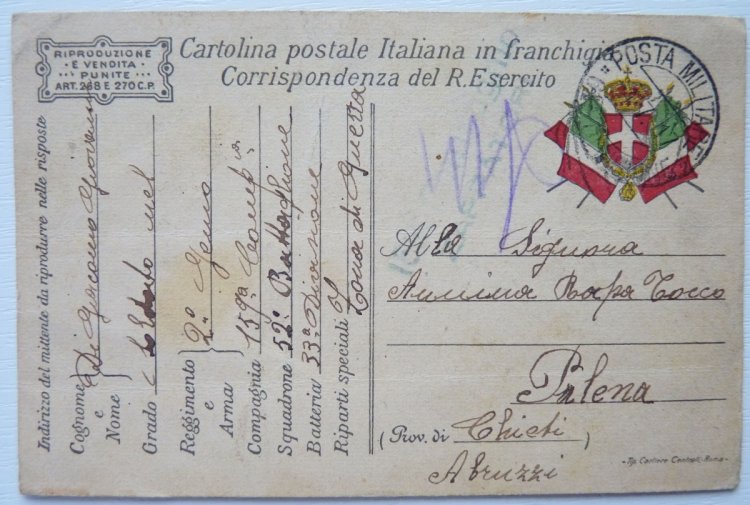 RIPRODUZIONE
E VENDITA
PUNITE
ART. 268 E 270 C.P.
Cartolina postale Italiana in franchigia
Corrispondenza del R. Esercito
POSTA MILITARE
Indirizzo del mittente da riprodurre nelle risposte
Cognome e Nome Di Giacomo Giovanni
Grado Soldato nel
Reggimento e Arma 2º Genio
Compagnia 159ª Comp
Squadrone 52º Battaglione
Batteria 33ª Divisione
Riparti speciali Zona di Guerra
Alla Signora
Annina Rapa Tocco
Palena
(Prov. di Chieti)
Abruzzi
Tip. Cartiere Centrali - Roma